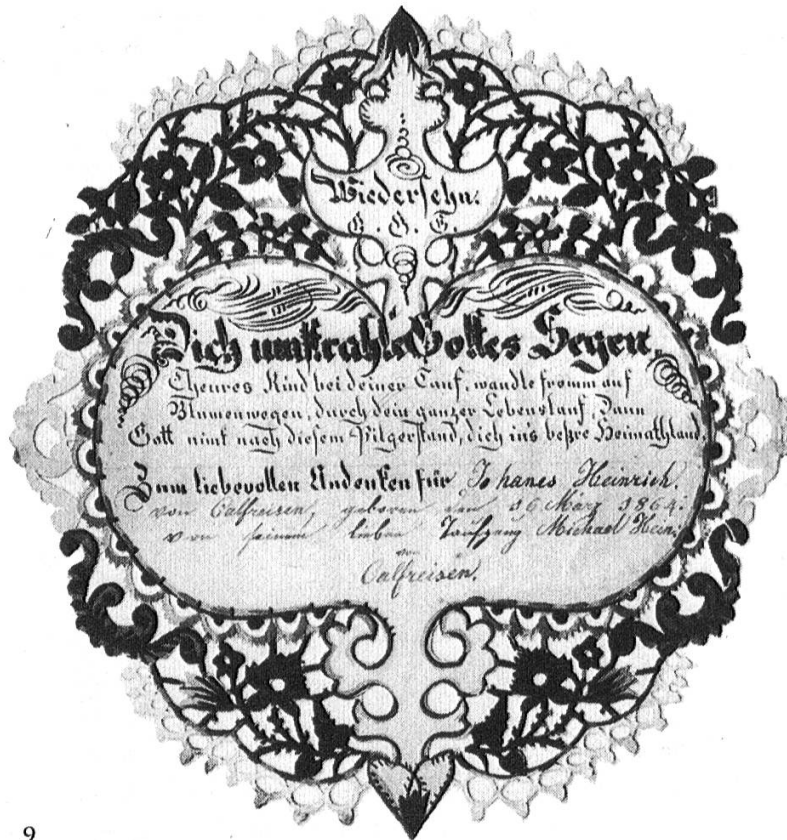 Wiedersehn.
G. G. G.
Dich umstrahle Gottes Segen,
Theures Kind bei deiner Tauf, wandle fromm auf
Blumenwegen, durch dein ganzer Lebenslauf, Dann
Gott nimt nach diesem Pilgerstand, dich in's beßre Heimathland.
Zum liebevollen Andenken für Johanes Heinrich.
von Calfreisen, geboren den 16 März 1864.
von seinem lieben Taufzeug Michael Hein.
von
Calfreisen.
9